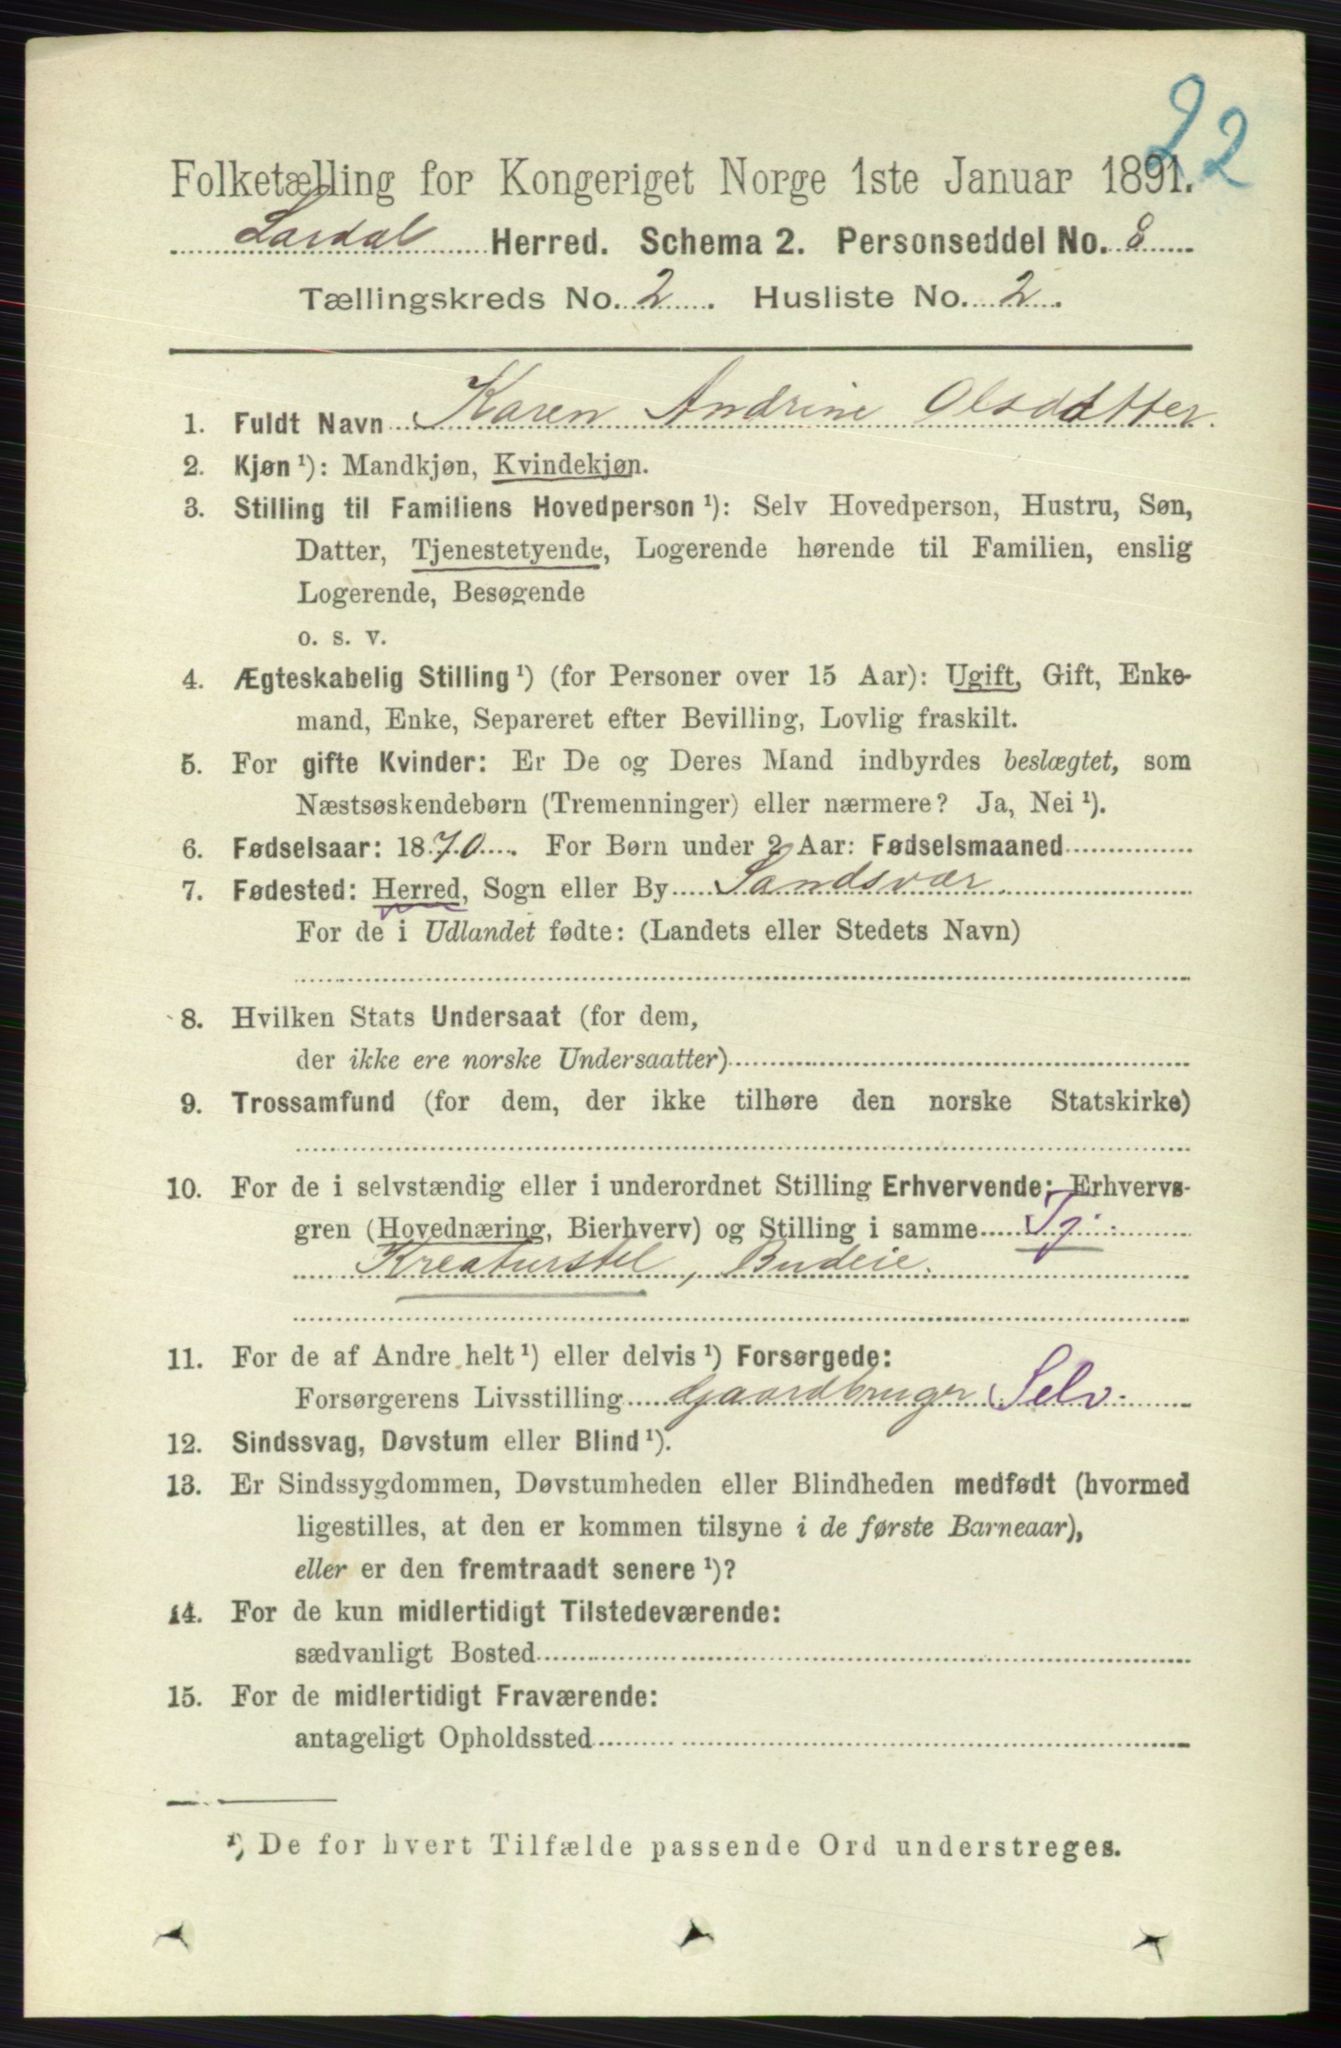 22
Folketælling for Kongeriget Norge 1ste Januar 1891.
Lardal Herred. Schema 2. Personseddel No. 8
Tællingskreds No. 2. Husliste No. 2.
1. Fuldt Navn Karen Andrine Olsdatter.
2. Kjøn ¹): Mandkjøn, Kvindekjøn.
3. Stilling til Familiens Hovedperson ¹): Selv Hovedperson, Hustru, Søn,
Datter, Tjenestetyende, Logerende hørende til Familien, enslig
Logerende, Besøgende
o. s. v.
4. Ægteskabelig Stilling ¹) (for Personer over 15 Aar): Ugift, Gift, Enke-
mand, Enke, Separeret efter Bevilling, Lovlig fraskilt.
5. For gifte Kvinder: Er De og Deres Mand indbyrdes beslægtet, som
Næstsøskendebørn (Tremenninger) eller nærmere? Ja, Nei ¹).
6. Fødselsaar: 1870. For Børn under 2 Aar: Fødselsmaaned
7. Fødested: Herred, Sogn eller By Sandsvær.
For de i Udlandet fødte: (Landets eller Stedets Navn)
8. Hvilken Stats Undersaat (for dem,
der ikke ere norske Undersaatter)
9. Trossamfund (for dem, der ikke tilhøre den norske Statskirke)
10. For de i selvstændig eller i underordnet Stilling Erhvervende: Erhvervs-
gren (Hovednæring, Bierhverv) og Stilling i samme Tj.
Kreaturstel, Budeie.
11. For de af Andre helt ¹) eller delvis ¹) Forsørgede:
Forsørgerens Livsstilling Gaardbruger Selv.
12. Sindssvag, Døvstum eller Blind ¹).
13. Er Sindssygdommen, Døvstumheden eller Blindheden medfødt (hvormed
ligestilles, at den er kommen tilsyne i de første Barneaar),
eller er den fremtraadt senere ¹)?
14. For de kun midlertidigt Tilstedeværende:
sædvanligt Bosted
15. For de midlertidigt Fraværende:
antageligt Opholdssted
¹) De for hvert Tilfælde passende Ord understreges.